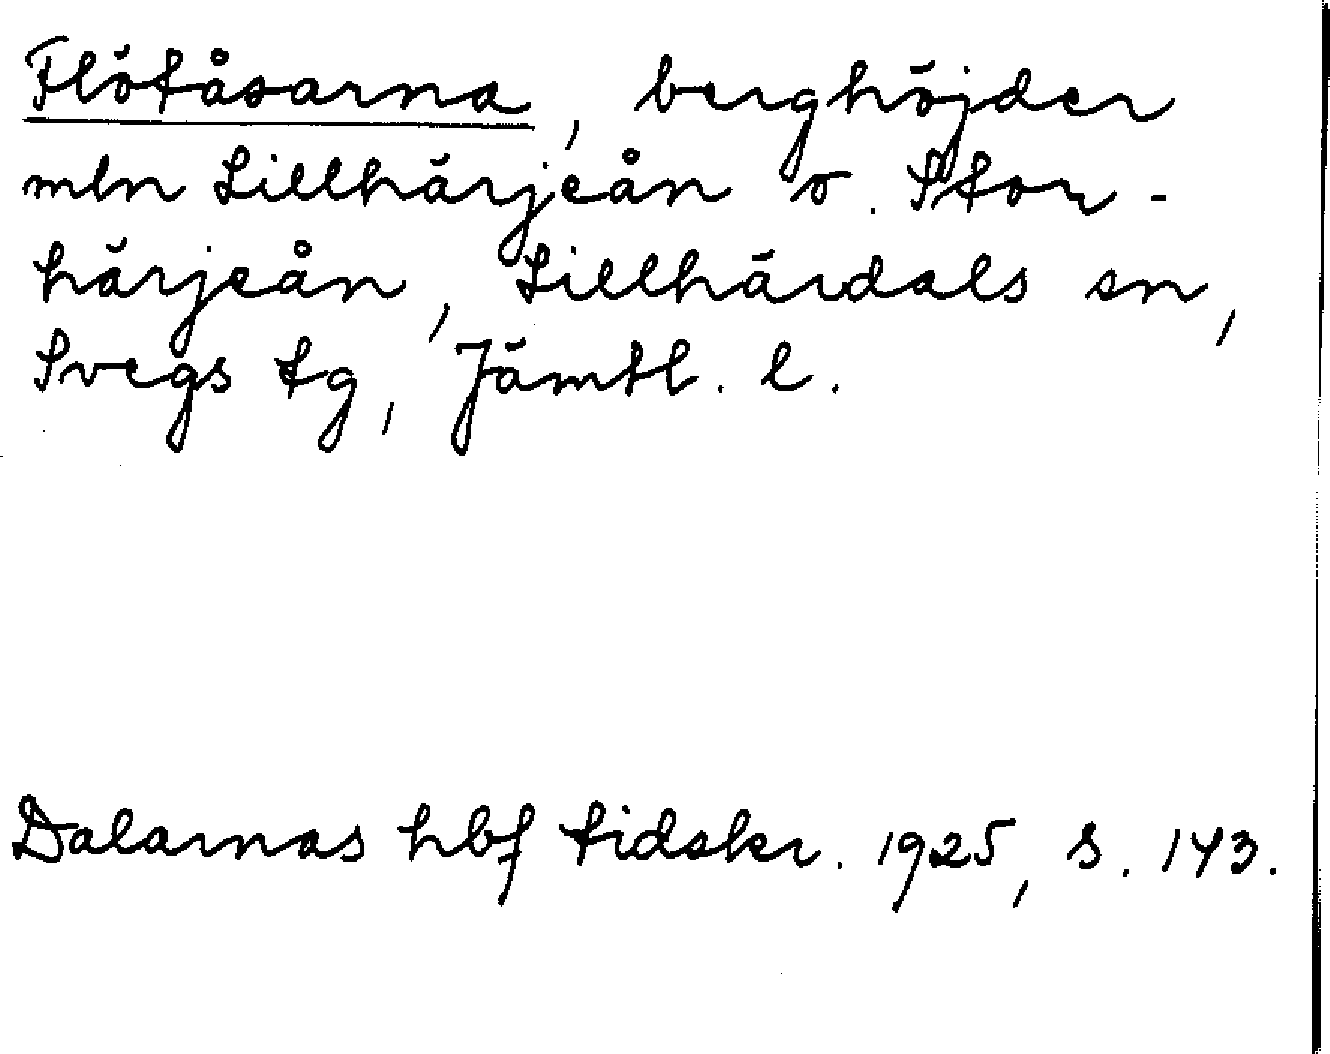 Flötåsarna, berghöjder
mln Lillhärjeån o. Stor-
härjeån, Lillhärdals sn,
Svegs tg, Jämtl. l.
Dalarnas hbf tidskr. 1925, s. 143.